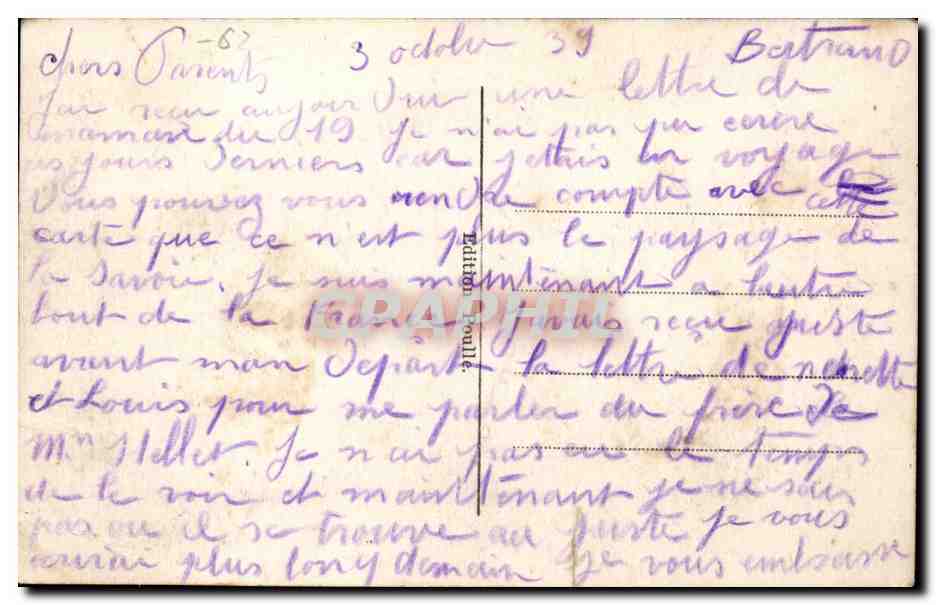 -62
3 octobre 39 Bertrand
chers Parents
J'ai reçu aujour d'hui une lettre de
maman du 19 Je n'ai pas pu ecrire
ces jours derniers car j'etais en voyage
Vous pouvez vous rendre compte avec cette
carte que ce n'est plus le paysage de
la Savoie. Je suis maintenant a lautre
bout de la France. J'avais reçu juste
avant mon Départ la lettre de
et Louis pour me parler du frère de
Mr Hellet Je n'ai pas eu le temps
de le voir et maintenant je ne sais
pas ou il se trouve au juste Je vous
ecrirai plus long demain Je vous embrasse
Edition Poulle.
CRAPHIL